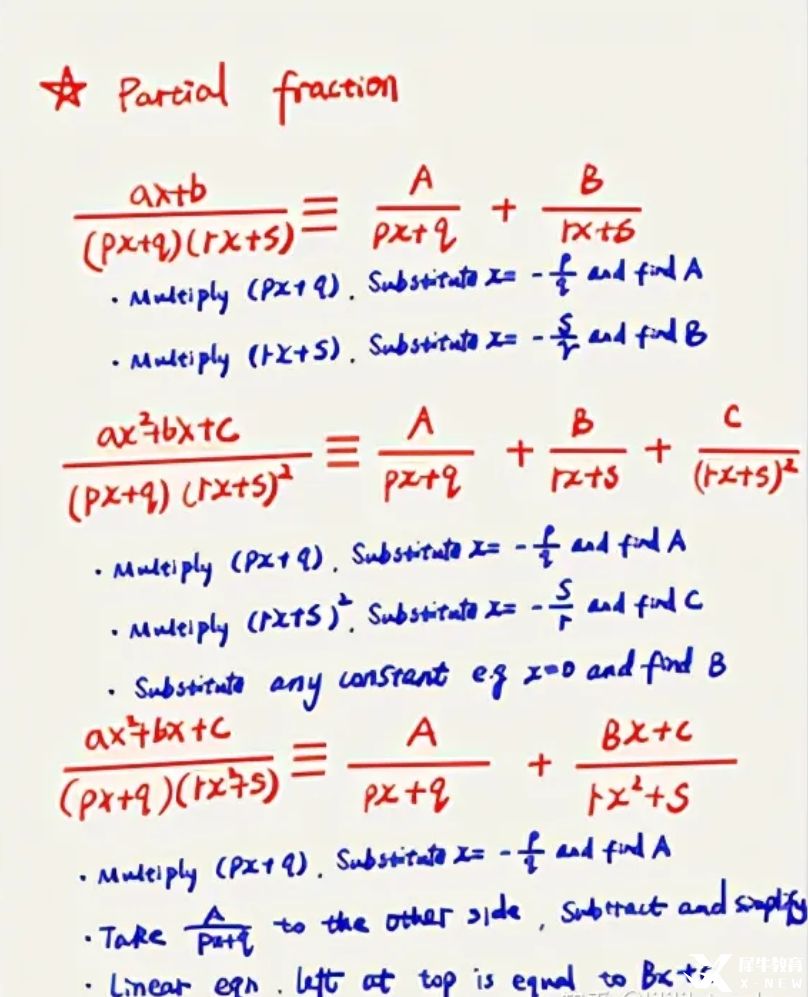 ☆ Partial fraction
ax+b / (px+q)(rx+s) ≡ A / px+q + B / rx+s
· Multiply (px+q). Substitute x= -p/q and find A
· Multiply (rx+s). Substitute x= -s/r and find B
ax²+bx+c / (px+q)(rx+s)² ≡ A / px+q + B / rx+s + C / (rx+s)²
· Multiply (px+q). Substitute x= -p/q and find A
· Multiply (rx+s)². Substitute x= -s/r and find C
· Substitute any constant e.g x=0 and find B
ax²+bx+c / (px+q)(rx²+s) ≡ A / px+q + Bx+c / rx²+s
· Multiply (px+q). Substitute x= -p/q and find A
· Take A / px+q to the other side, Subtract and simplify
· Linear eqn. left at top is equal to Bx+c
犀牛教育
X-NEW